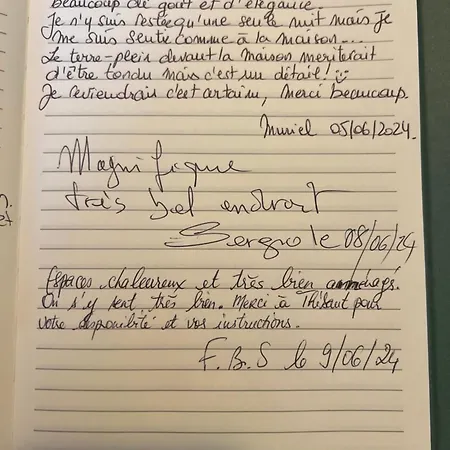 beaucoup de goût et d'élégance.
Je n'y suis restée qu'une seule nuit mais je
me suis sentie comme à la maison...
Le terre-plein devant la maison mériterait
d'être tondu mais c'est un détail! 
Je reviendrais c'est certain, Merci beaucoup.
Muriel 05/06/2024.
Magnifique
très bel endroit
Sergio le 08/06/24
Espaces chaleureux et très bien aménagés.
On s'y sent très bien. Merci à Thibaut pour
votre disponibilité et vos instructions.
F.B.S le 9/06/24